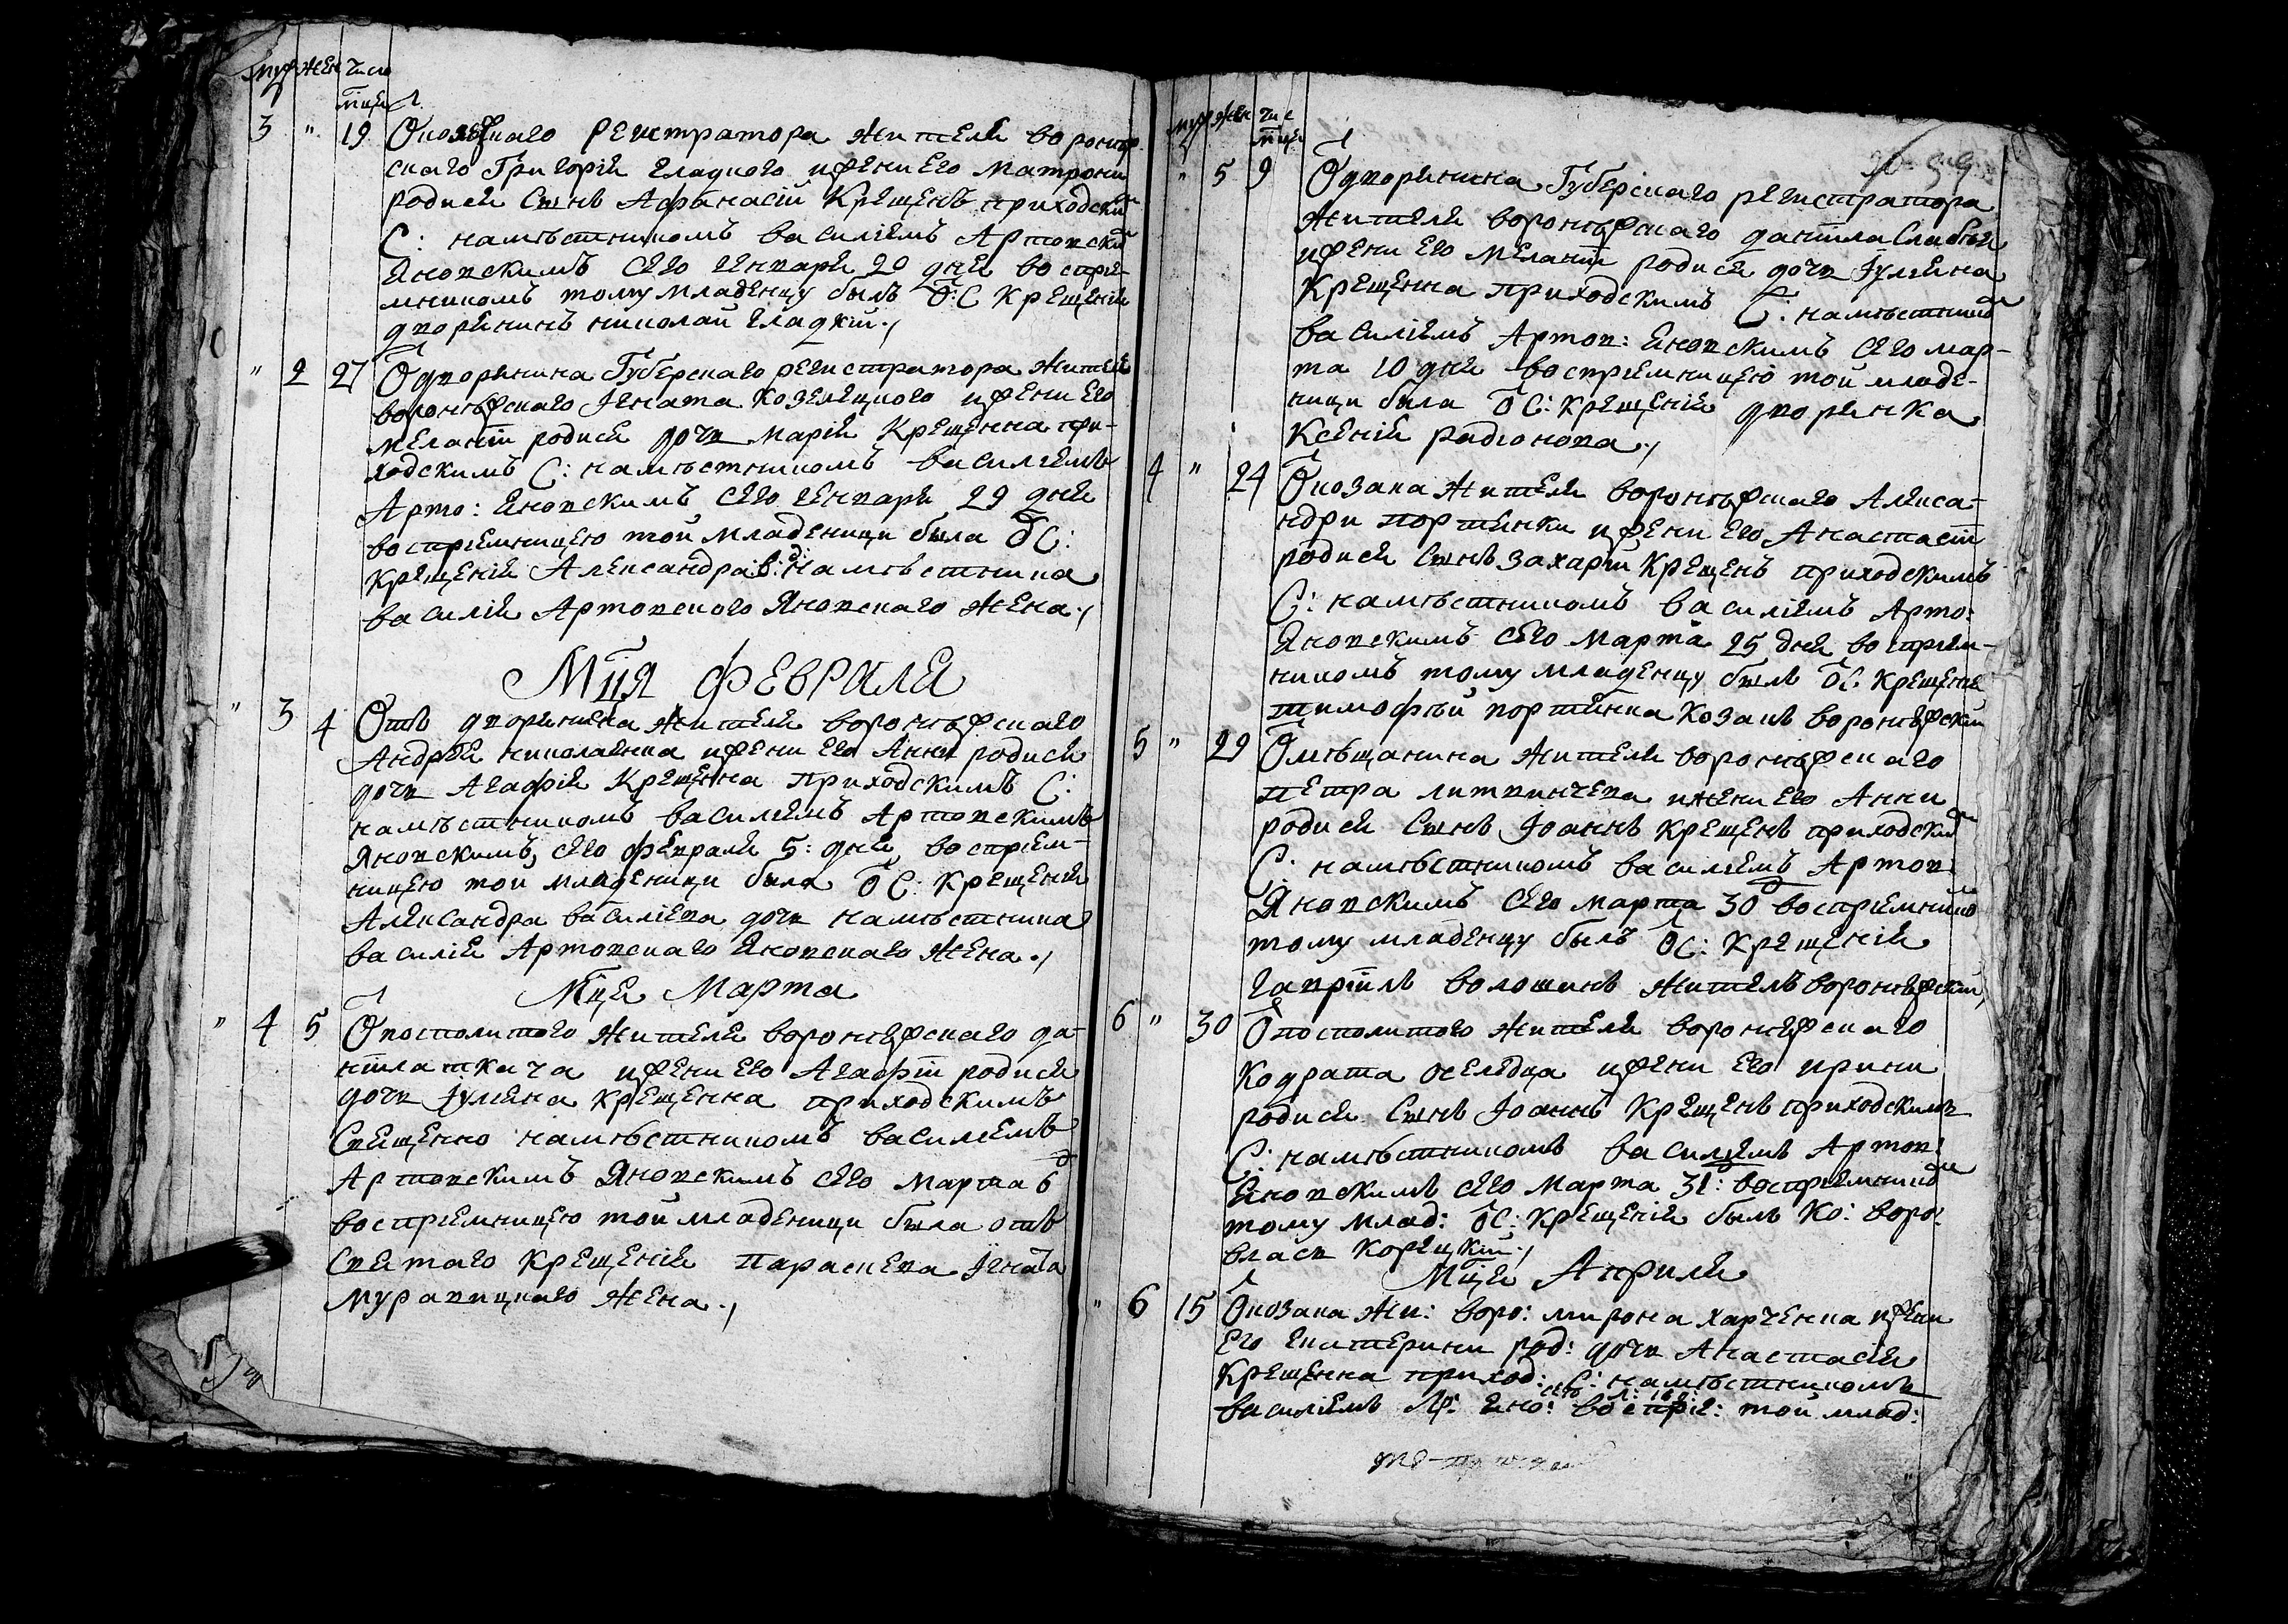 муж жен числ
мця
3 " 19 Ѿ колежнаго регистратора жителя воронѣж
скаго Григорія Гладкого и жени его Матрони
родися сынъ Афанасій крещенъ приходским
С: намѣстникомъ василіемъ Артовским
Яновскимъ сего генваря 20 дня воспріе-
мникомъ тому младенцу былъ ѿ С крещенія
дворянинъ николай Гладкій./
" 2 27 Ѿ дворянина Губерскаго регистратора жителя
воронѣжскаго Ігната Козелецкого и жени его
меланіи родися дочь марія Крещенна при-
ходскимъ С: намѣстникомъ василіемъ
Арто: Яновскимъ сего генваря 29 дня
воспріемницею той младеници была ѿ С:
крещенія Александра в: намѣстника
василія Артовского Яновскаго жена./
Мця Февраля
" 3 4 Отъ дворянина жителя воронѣжскаго
Андрея николаенка и жени его Анни родися
дочь Агафія Крещенна приходскимъ С:
намѣстникомъ василіемъ Артовскимъ
Яновскимъ, сего февраля 5: дня, воспріем-
ницею той младеници была ѿ С: крещенія
Александра василіева дочь намѣстника
василія Артовскаго Яновскаго жена./
Мця Марта
" 4 5 Ѿ посполитого жителя воронѣжскаго да-
ніила ткача и жени его Агафіи родися
дочь Іуліяна крещенна приходскимъ
Священно намѣстникомъ василіемъ
Артовскимъ Яновскимъ сего марта 6 д
воспріемницею той младеници была отъ
Святаго крещенія параскева Ігната
муравицкаго жена./
муж жен чис
мця
" 5 9 Ѿ дворянина Губерскаго регистратора
жителя воронѣжскаго даніила
и жени его меланіи родися дочь Іуліяна
Крещенна приходскимъ С: намѣстником
василіемъ Артов: Яновскимъ сего мар-
та 10 дня воспріемницею той младе-
ници была ѿ С: крещенія дворянка
Ксенія радіонова./
4 " 24 Ѿ козака жителя воронѣжскаго Алекса-
ндри портянки и жени его Анастасіи
родися сынъ захарій крещенъ приходскимъ
С: намѣстникомъ василіемъ Арто:
Яновскимъ сего марта 25 дня воспріем-
никомъ тому младенцу былъ ѿ С: крещенія
тимофѣй портянка козакъ воронѣжскій
5 " 29 Ѿ мѣщанина жителя воронѣжскаго
петра литвинчева и жени его Анни
родися сынъ Іоаннъ крещенъ приходским
С: намѣстникомъ василіемъ Артов:
Яновскимъ сего марта 30 д воспріемником
тому младенцу былъ ѿ С: крещенія
гавріилъ волошинъ житель воронѣжскій,
6 " 30 Ѿ посполитого жителя воронѣжскаго
Кодрата оселедца и жени его ирини
родися сынъ Іоаннъ крещенъ приходскимъ
С: намѣстникомъ василіемъ Артов:
Яновскимъ сего марта 31: воспріемником
тому млад: ѿ С: крещенія былъ ко: воро:
власъ корецкій./
Мця Априля
" 6 15 Ѿ козака жи: воро: мирона харченка и жени
его екатерини род: дочь Анастасія
крещенна приход: С: намѣстникомъ
василіемъ Ар: Яно: воспріе: той млад: